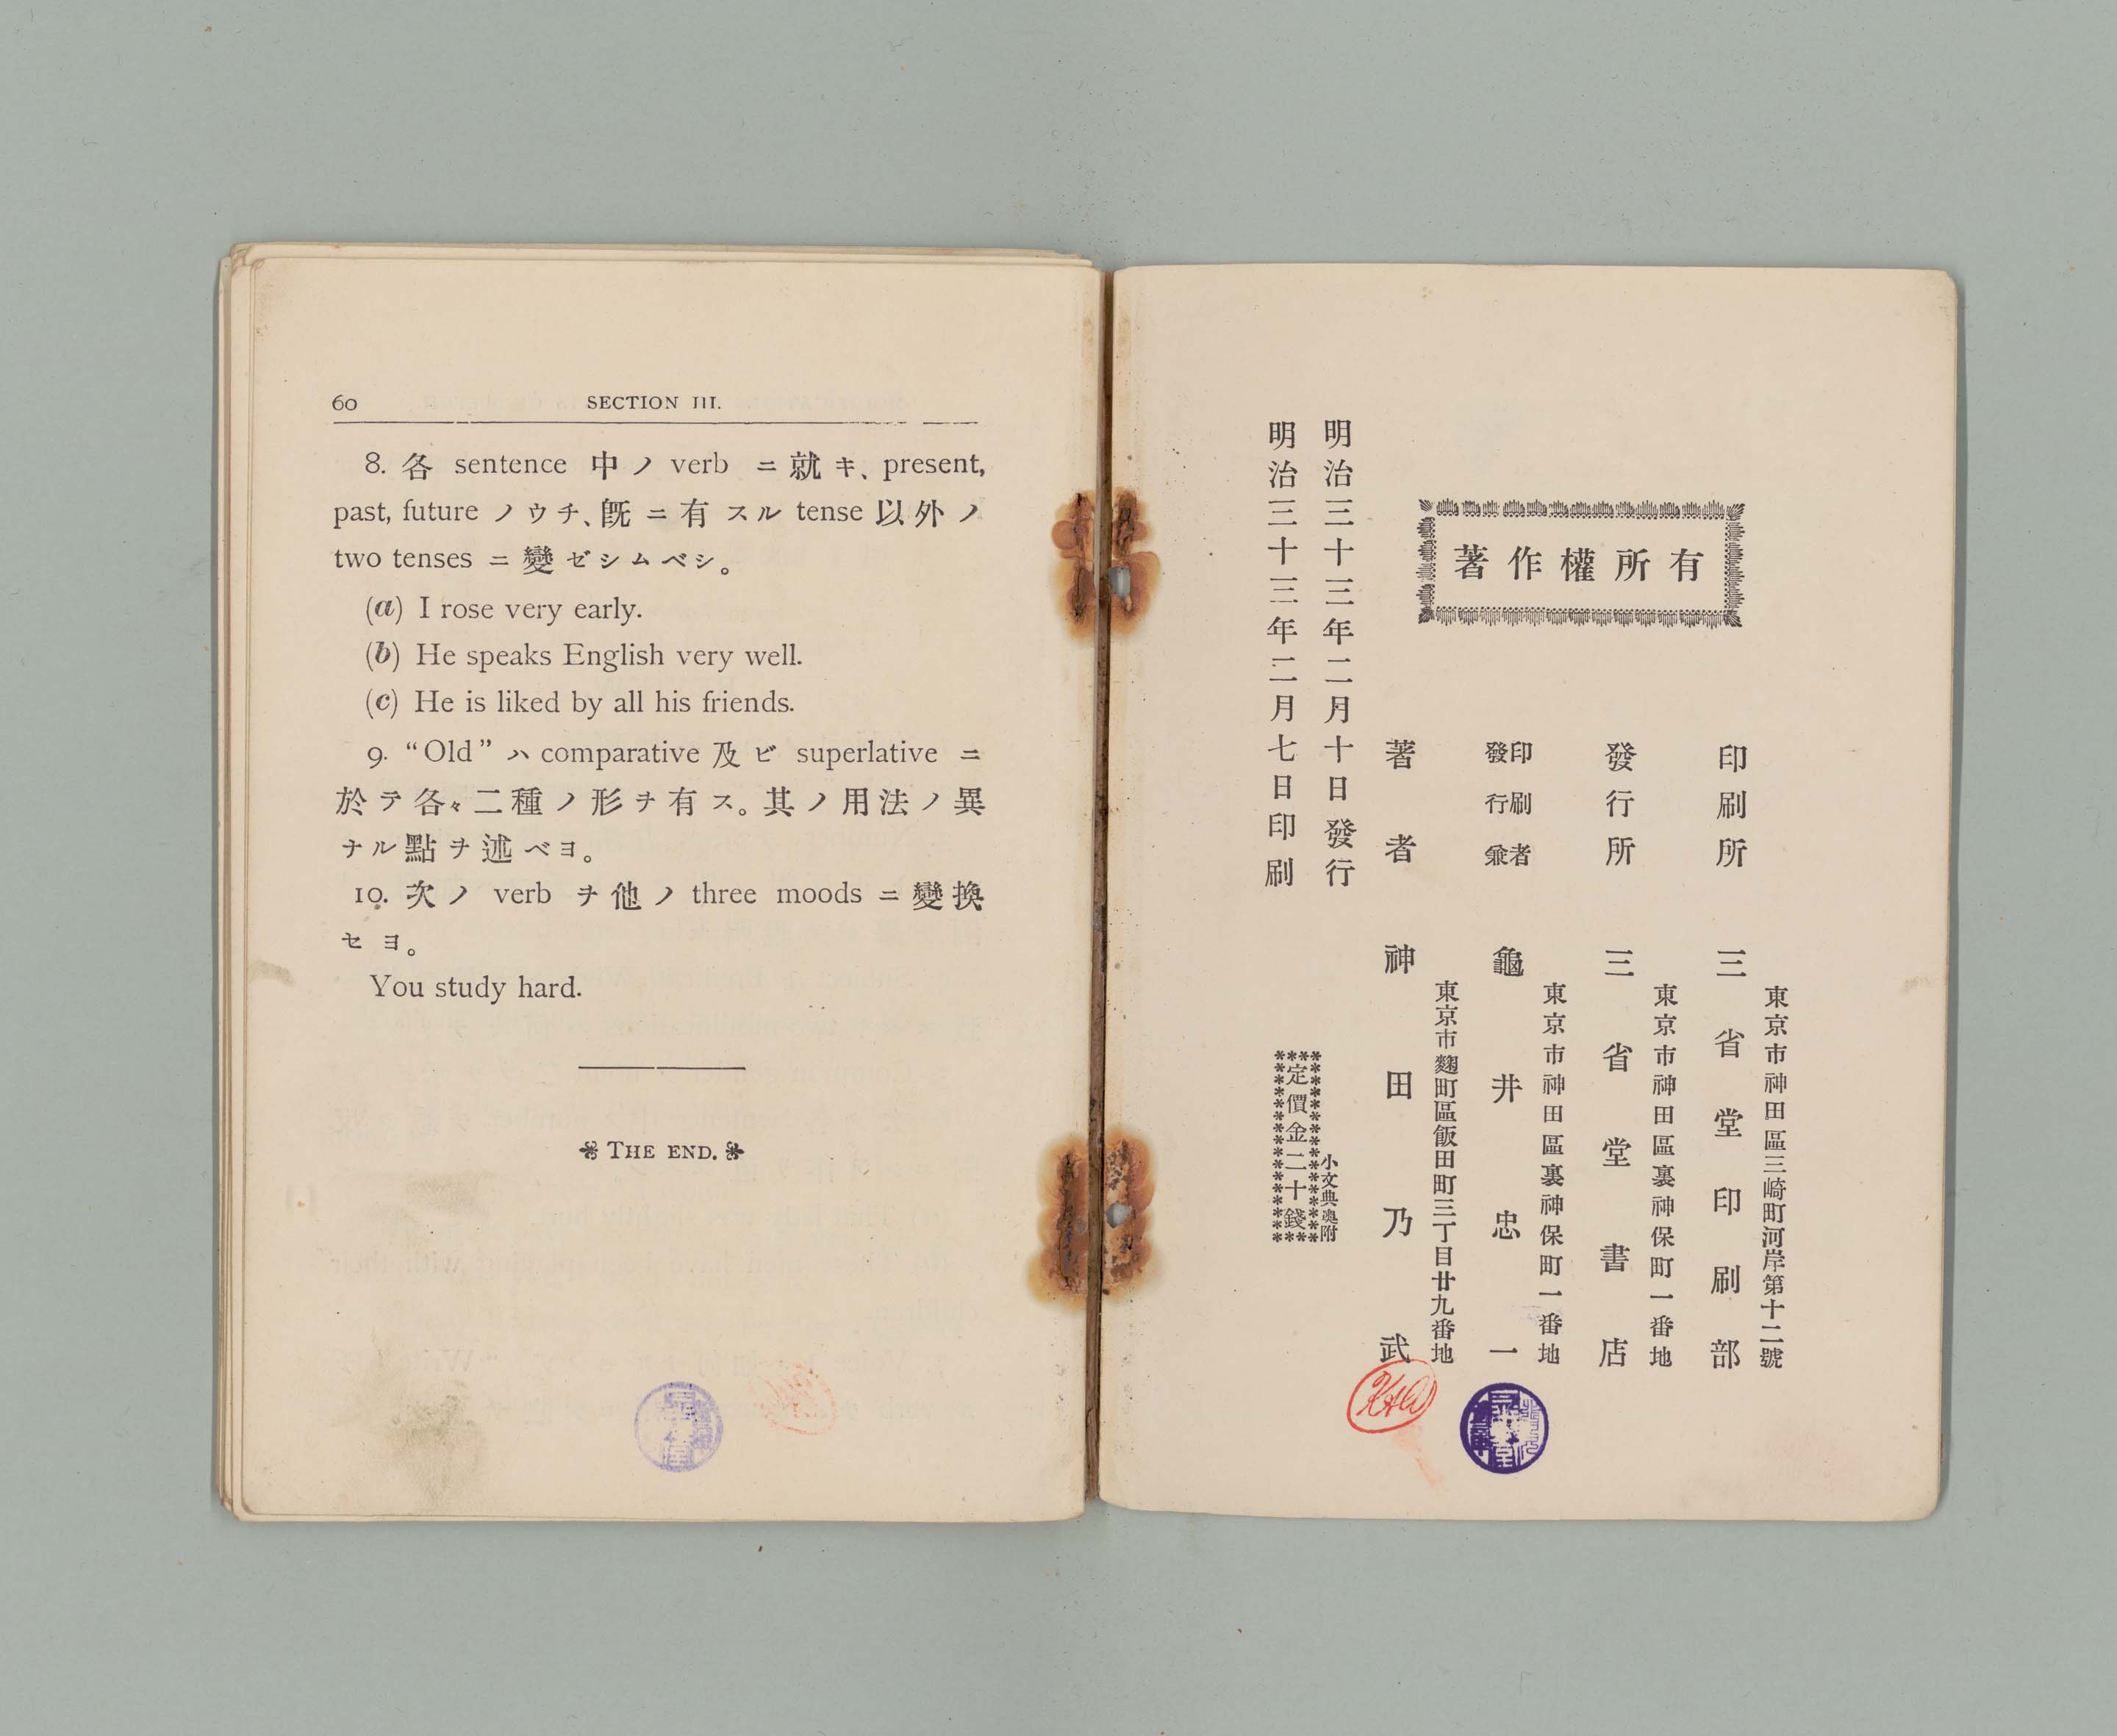 60 SECTION III.
8. 各 sentence 中ノ verb ニ就キ、present,
past, future ノウチ、既ニ有スル tense 以外ノ
two tenses ニ變ゼシムベシ。
(a) I rose very early.
(b) He speaks English very well.
(c) He is liked by all his friends.
9. “Old” ハ comparative 及ビ superlative ニ
於テ各々二種ノ形ヲ有ス。其ノ用法ノ異
ナル點ヲ述ベヨ。
10. 次ノ verb ヲ他ノ three moods ニ變換
セヨ。
You study hard.
THE END.
著作權所有
東京市神田區三崎町河岸第十二號
印刷所 三省堂印刷部
東京市神田區裏神保町一番地
發行所 三省堂書店
東京市神田區裏神保町一番地
印刷者
發行兼
龜井忠一
東京市麴町區飯田町三丁目廿九番地
著者 神田乃武
明治三十三年二月十日發行
明治三十三年二月七日印刷
小文典奧附
定價金二十錢